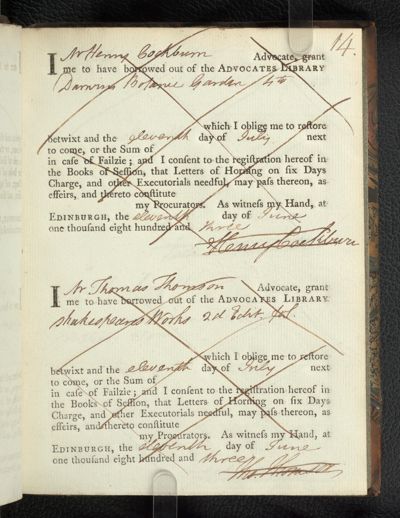 14.
I Mr Henry Cockburn Advocate, grant
me to have borrowed out of the ADVOCATES LIBRARY
Darwins Botanic Garden 4to
which I oblige me to reſtore
betwixt and the eleventh day of July next
to come, or the Sum of
in caſe of Failzie; and I conſent to the regiſtration hereof in
the Books of Seſſion, that Letters of Horning on ſix Days
Charge, and other Executorials needful, may paſs thereon, as
effeirs, and thereto conſtitute
my Procurators. As witneſs my Hand, at
EDINBURGH, the eleventh day of June
one thouſand eight hundred and three
Henry Cockburn
I Mr Thomas Thomson Advocate, grant
me to have borrowed out of the ADVOCATES LIBRARY
Shakespears Works 2d Edit. fol.
which I oblige me to reſtore
betwixt and the eleventh day of July next
to come, or the Sum of
in caſe of Failzie; and I conſent to the regiſtration hereof in
the Books of Seſſion, that Letters of Horning on ſix Days
Charge, and other Executorials needful, may paſs thereon, as
effeirs, and thereto conſtitute
my Procurators. As witneſs my Hand, at
EDINBURGH, the eleventh day of June
one thouſand eight hundred and three
Tho. Thomson